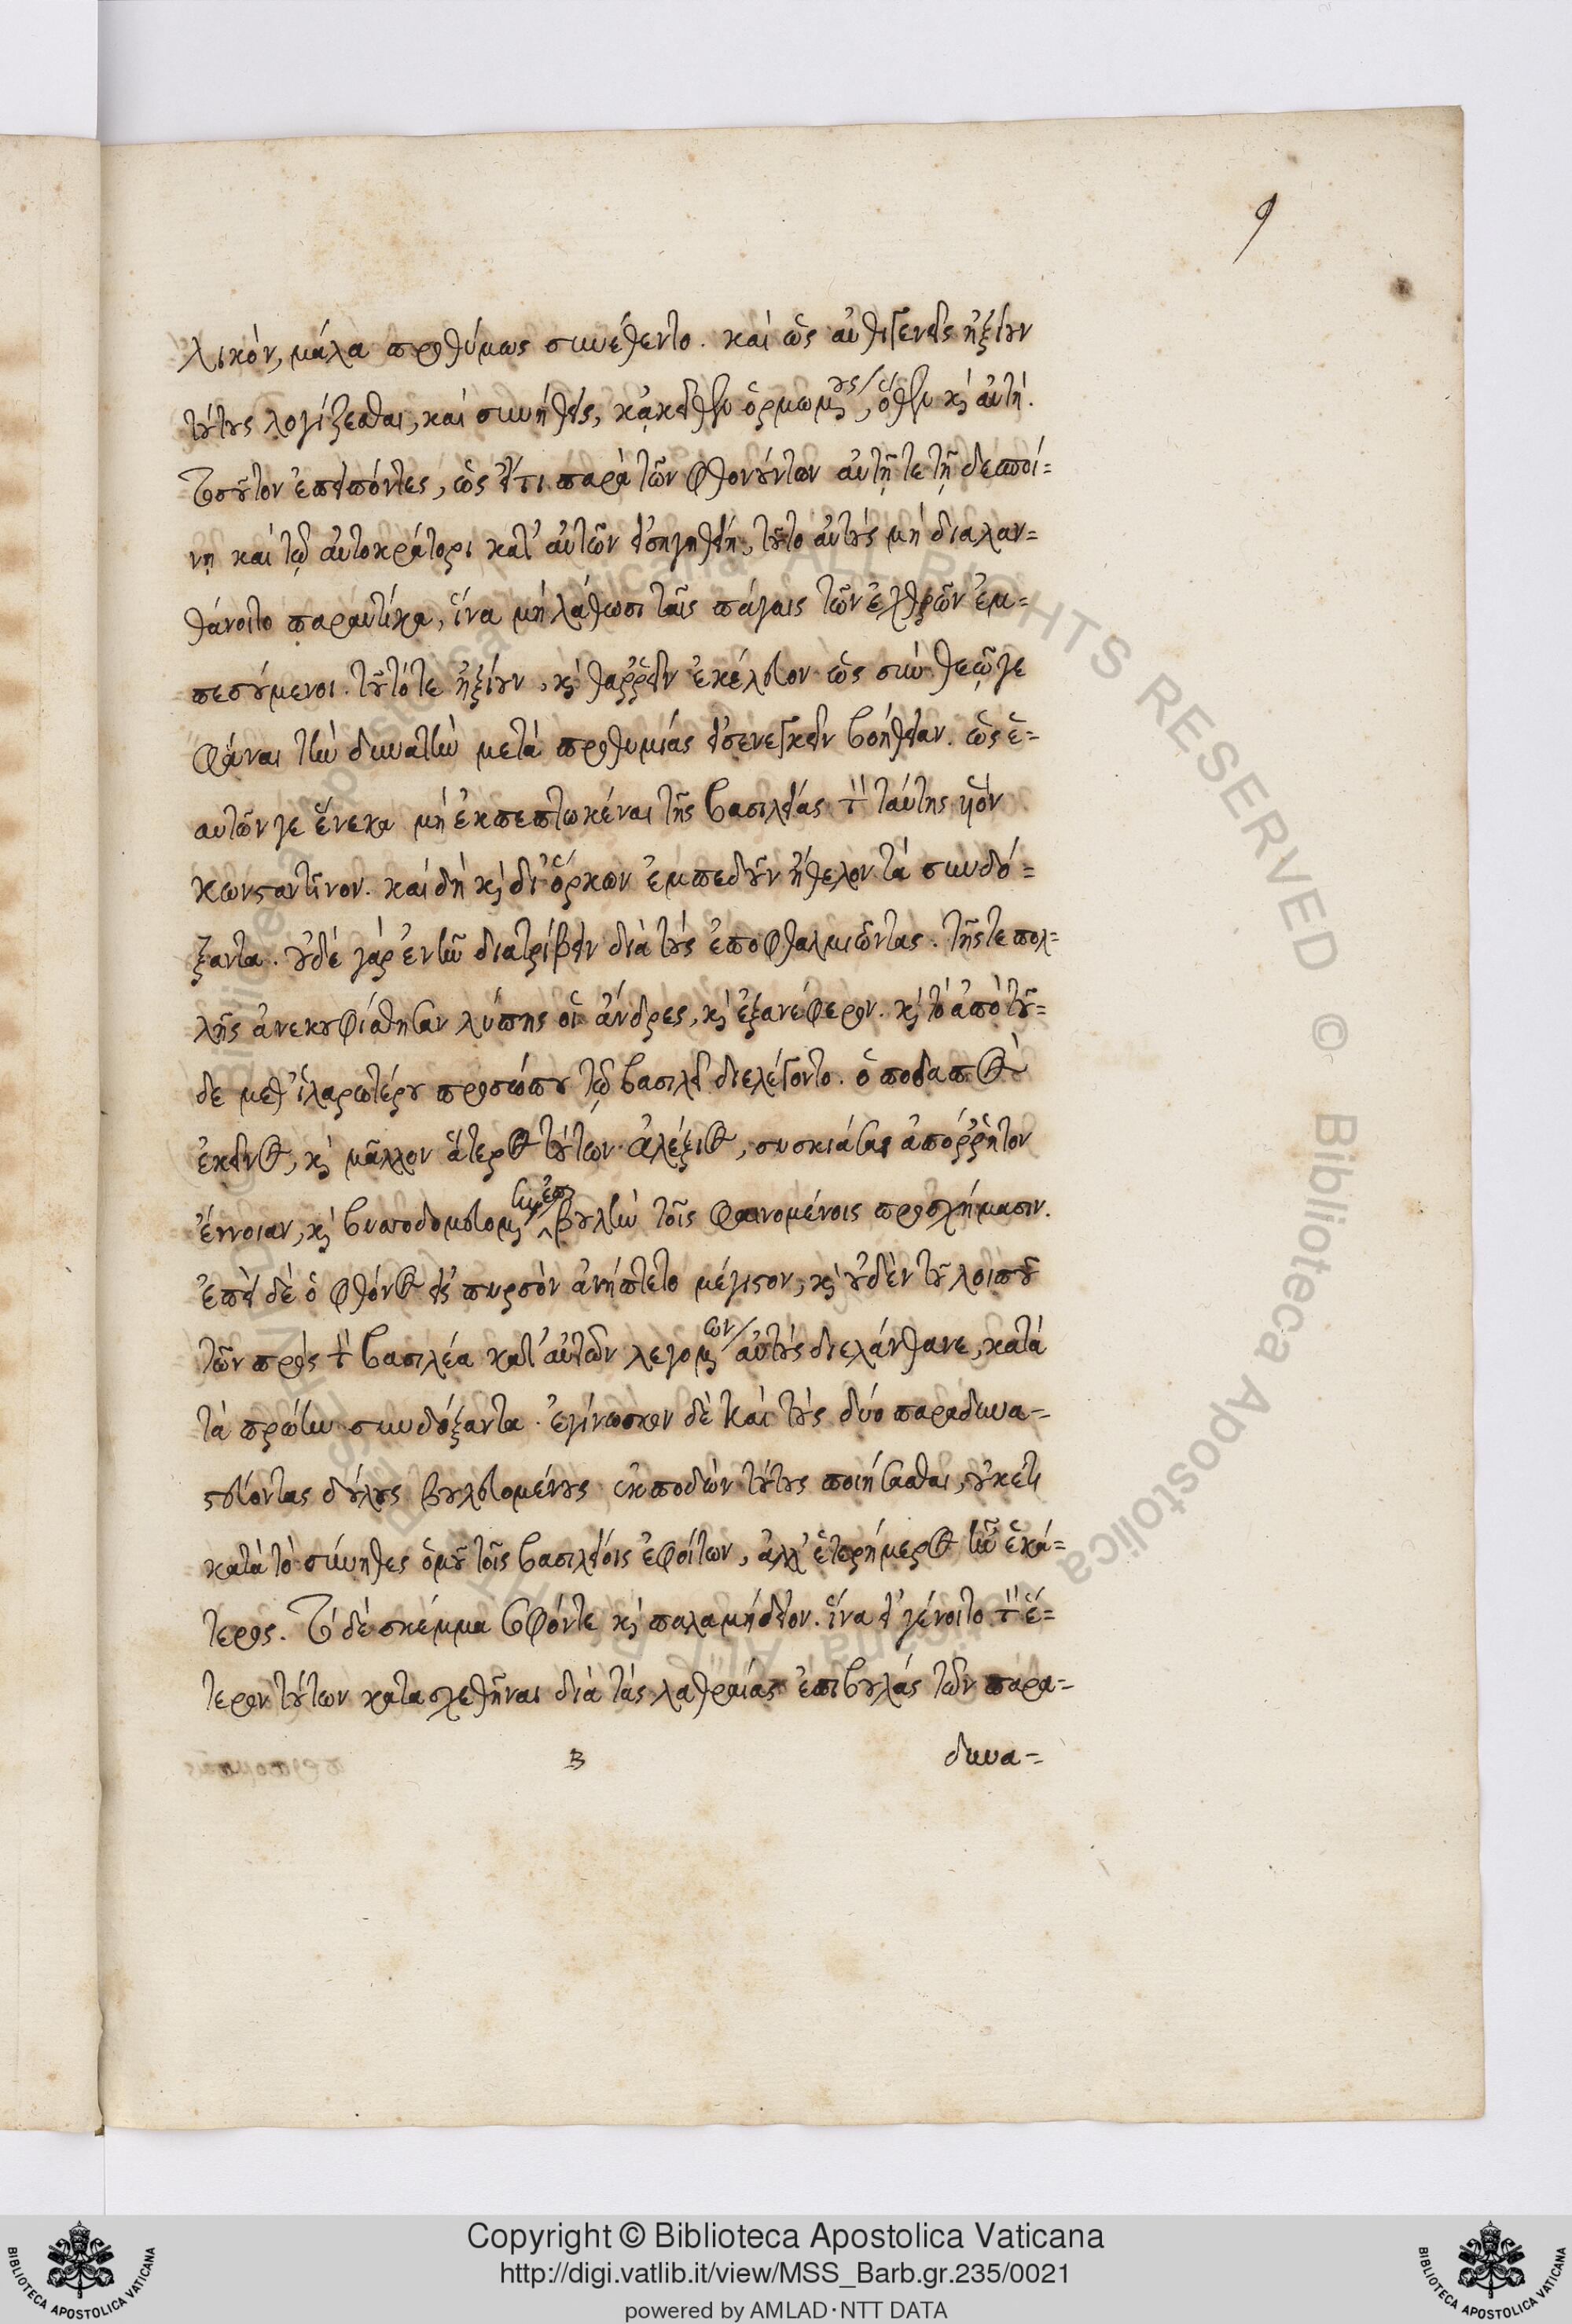 9
λικόν, μάλα προθύμως συνέθεντο. καὶ ὡς αὐθιγενεῖς ἠξίουν
τούτους λογίζεσθαι, καὶ συνήθεις, κἀκεῖθεν ὁρμωμένους, ὅθεν καὶ αὐτή.
Τοσοῦτον ἐπειπόντες, ὡς εἴ τι παρὰ τῶν φθονούντων αὐτῇ τε τῇ δεσποί=
νῃ καὶ τῷ αὐτοκράτορι κατ' αὐτῶν εἰσηγηθείη, τοῦτο αὐτοὺς μὴ διαλαν=
θάνοιτο παραυτίκα, ἵνα μὴ λάθωσι ταῖς πάγαις τῶν ἐχθρῶν ἐμ=
πεσούμενοι. τοῦτό τε ἠξίουν, καὶ θαῤῥεῖν ἐκέλευον ὡς σὺν θεῷ γε
φάναι τὴν δυνατὴν μετὰ προθυμίας εἰσενεγκεῖν βοήθειαν. ὡς ἑ=
αυτῶν γε ἕνεκα μὴ ἐκπεπτωκέναι τῆς βασιλείας τὸν ταύτης υἱὸν
Κωνσταντῖνον. καὶ δὴ καὶ δι' ὅρκων ἐμπεδοῦν ἤθελον τὰ συνδό=
ξαντα. οὐδὲ γὰρ ἐνῆν διατρίβειν διὰ τοὺς ἐποφθαλμιῶντας. τῆς τε πολ=
λῆς ἀνεκουφίσθησαν λύπης οἱ ἄνδρες, καὶ ἐξανέφερον. καὶ τὸ ἀπὸ τοῦ=
δε μεθ' ἱλαρωτέρου προσώπου τῷ βασιλεῖ διελέγοντο. ὁποδαπὸς
ἐκεῖνος, καὶ μᾶλλον ἅτερος τούτων Ἀλέξιος, συσκιάσας ἀπόῤῥητον
ἔννοιαν, καὶ βυσσοδομευομένην ἐπιβουλὴν τοῖς φαινομένοις προσχήμασιν.
Ἐπεὶ δὲ ὁ φθόνος εἰς πυρσὸν ἀνήπτετο μέγιστον, καὶ οὐδὲν τοῦ λοιποῦ
τῶν πρὸς τὸν βασιλέα κατ' αὐτῶν λεγομένων αὐτοὺς διελάνθανε, κατὰ
τὰ πρώτην συνδόξαντα. ἐγίνωσκον δὲ καὶ τοὺς δύο παραδυνα=
στεύοντας δούλους βουλευομένους ἐκποδὼν τούτους ποιήσασθαι, οὐκέτι
κατὰ τὸ σύνηθες ὁμοῦ τοῖς βασιλείοις ἐφοίτων, ἀλλ' ἑτερήμερος ἦν ἑκά=
τερος. Τὸ δὲ σκέμμα σοφόν τε καὶ παλαμήδειον. ἵνα εἰ γένοιτο τὸν ἕ=
τερον τούτων κατασχεθῆναι διὰ τὰς λαθραίας ἐπιβουλὰς τῶν παρα=
B
δυνα=
Copyright © Biblioteca Apostolica Vaticana
http://digi.vatlib.it/view/MSS_Barb.gr.235/0021
powered by AMLAD·NTT DATA
BIBLIOTECA APOSTOLICA VATICANA
BIBLIOTECA APOSTOLICA VATICANA